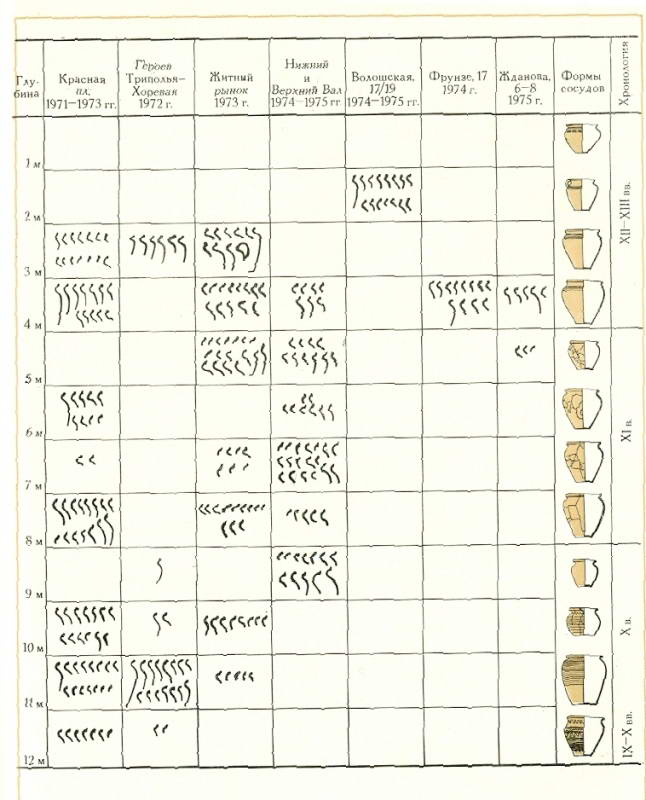 Глу-
бина
Красная
пл,
1971—1973 гг.
Героев
Триполья—
Хоревая
1972 г.
Житный
рынок
1973 г.
Нижний
и
Верхний Вал
1974—1975 гг
Волошская,
17/19
1974—1975 гг.
Фрунзе, 17
1974 г.
Жданова,
6—8
1975 г.
Формы
сосудов
Хронология
1 м
2 м
3 м
4 м
5 м
6 м
7 м
8 м
9 м
10 м
11 м
12 м
XII—XIII вв.
XI в.
X в.
IX—X вв.